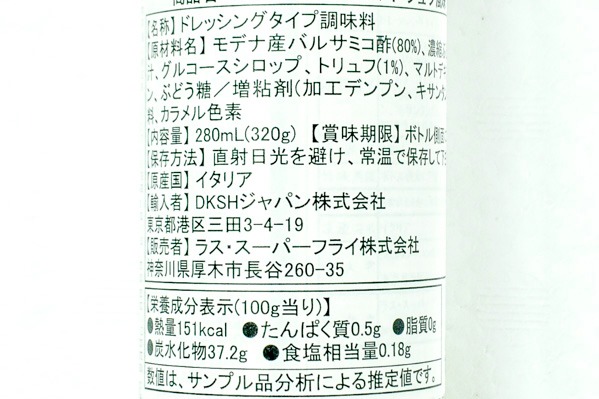 【名称】ドレッシングタイプ調味料
【原材料名】モデナ産バルサミコ酢(80%)、濃縮
汁、グルコースシロップ、トリュフ(1%)、マルトデキ
ン、ぶどう糖／増粘剤(加工デンプン、キサン
料、カラメル色素
【内容量】280mL(320g) 【賞味期限】ボトル側面
【保存方法】直射日光を避け、常温で保存して下
【原産国】イタリア
【輸入者】DKSHジャパン株式会社
東京都港区三田3-4-19
【販売者】ラス・スーパーフライ株式会社
神奈川県厚木市長谷260-35
【栄養成分表示(100g当り)】
●熱量151kcal ●たんぱく質0.5g ●脂質0g
●炭水化物37.2g ●食塩相当量0.18g
数値は、サンプル品分析による推定値です。